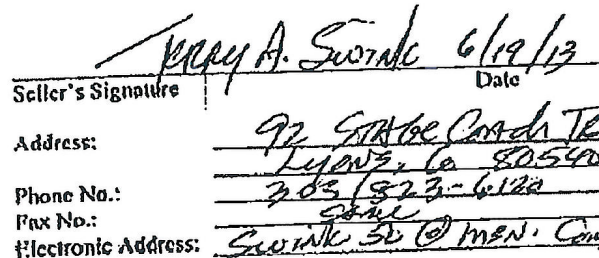 Terry A. Swink 6/19/13
Seller's Signature Date
Address: 92 Stage Coach TR
Lyons, Co 80540
Phone No.: 303/823-6120
Fax No.: Same
Electronic Address: @ msn. Com